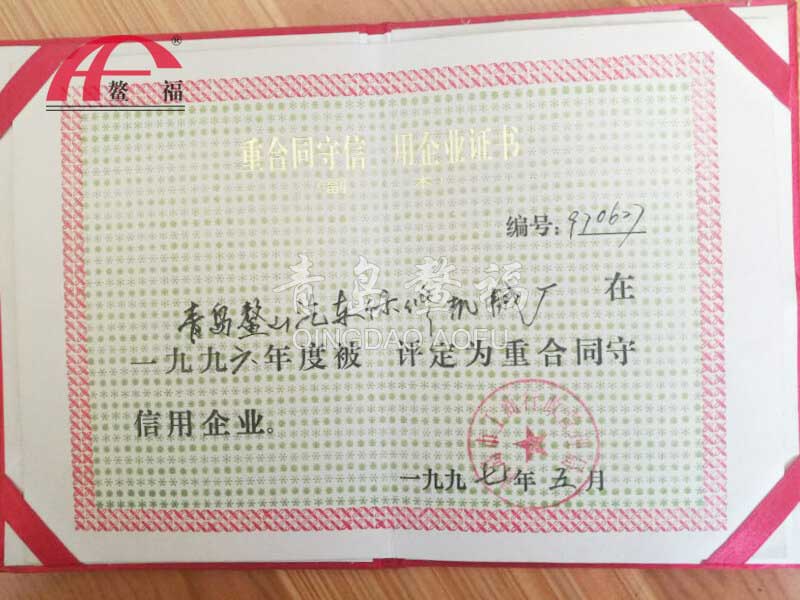 鳌福
®
重合同守信用企业证书
(副本)
编号:970627
青岛鳌福
青岛鳌山汽车维修机械厂在
QINGDAO AOFU
一九九六年度被评定为重合同守
信用企业。
一九九七年五月